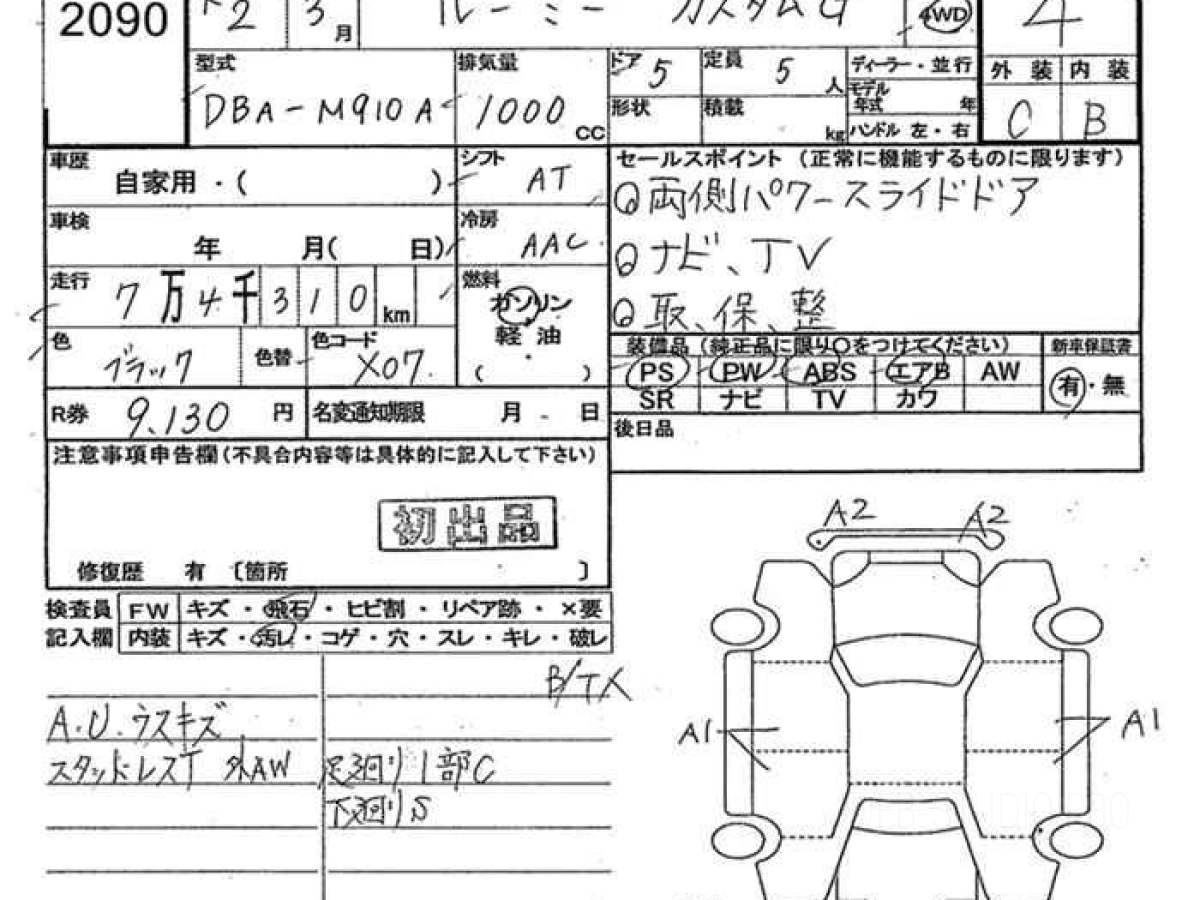 2090
2 3月
ルーミー カスタムG 4WD 4
型式 排気量 ドア 5 定員 5人 ディーラー・並行 外装 内装
DBA-M910A 1000 CC 形状 積載 kg モデル年式 年 C B
ハンドル 左・右
車歴 自家用・( ) シフト AT
車検 年 月( 日) 冷房 AAC
走行 7万4千310km 燃料 ガソリン
軽油
( )
色 ブラック 色替 色コード X07
R券 9,130円 名変通知期限 月 日
セールスポイント(正常に機能するものに限ります)
◎両側パワースライドドア
◎ナビ、TV
◎取、保、整
装備品(純正品に限り○をつけてください) 新車保証書
PS PW ABS エアB AW 有・無
SR ナビ TV カワ
後日品
注意事項申告欄(不具合内容等は具体的に記入して下さい)
初出品
修復歴 有 〔箇所 〕
検査員 FW キズ・飛石・ヒビ割・リペア跡・×要
記入欄 内装 キズ・汚レ・コゲ・穴・スレ・キレ・破レ
A.U.ウスキズ
スタッドレスT 外AW 足廻り1部C
下廻りS
A2 A2
A1 A1